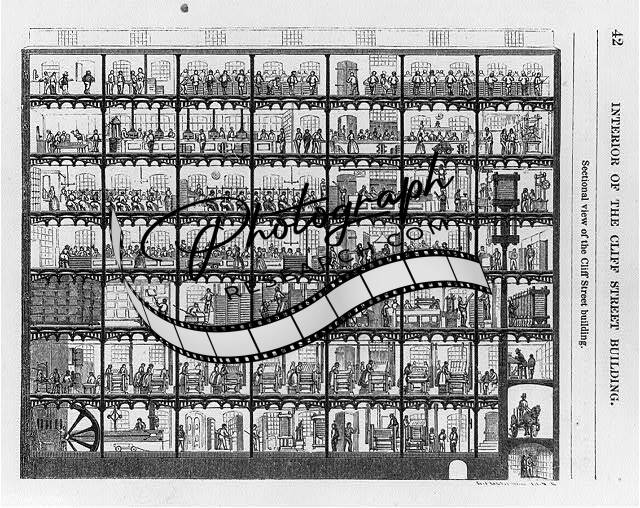 42
INTERIOR OF THE CLIFF STREET BUILDING.
Sectional view of the Cliff Street building.
Photograph
RESEARCH.COM